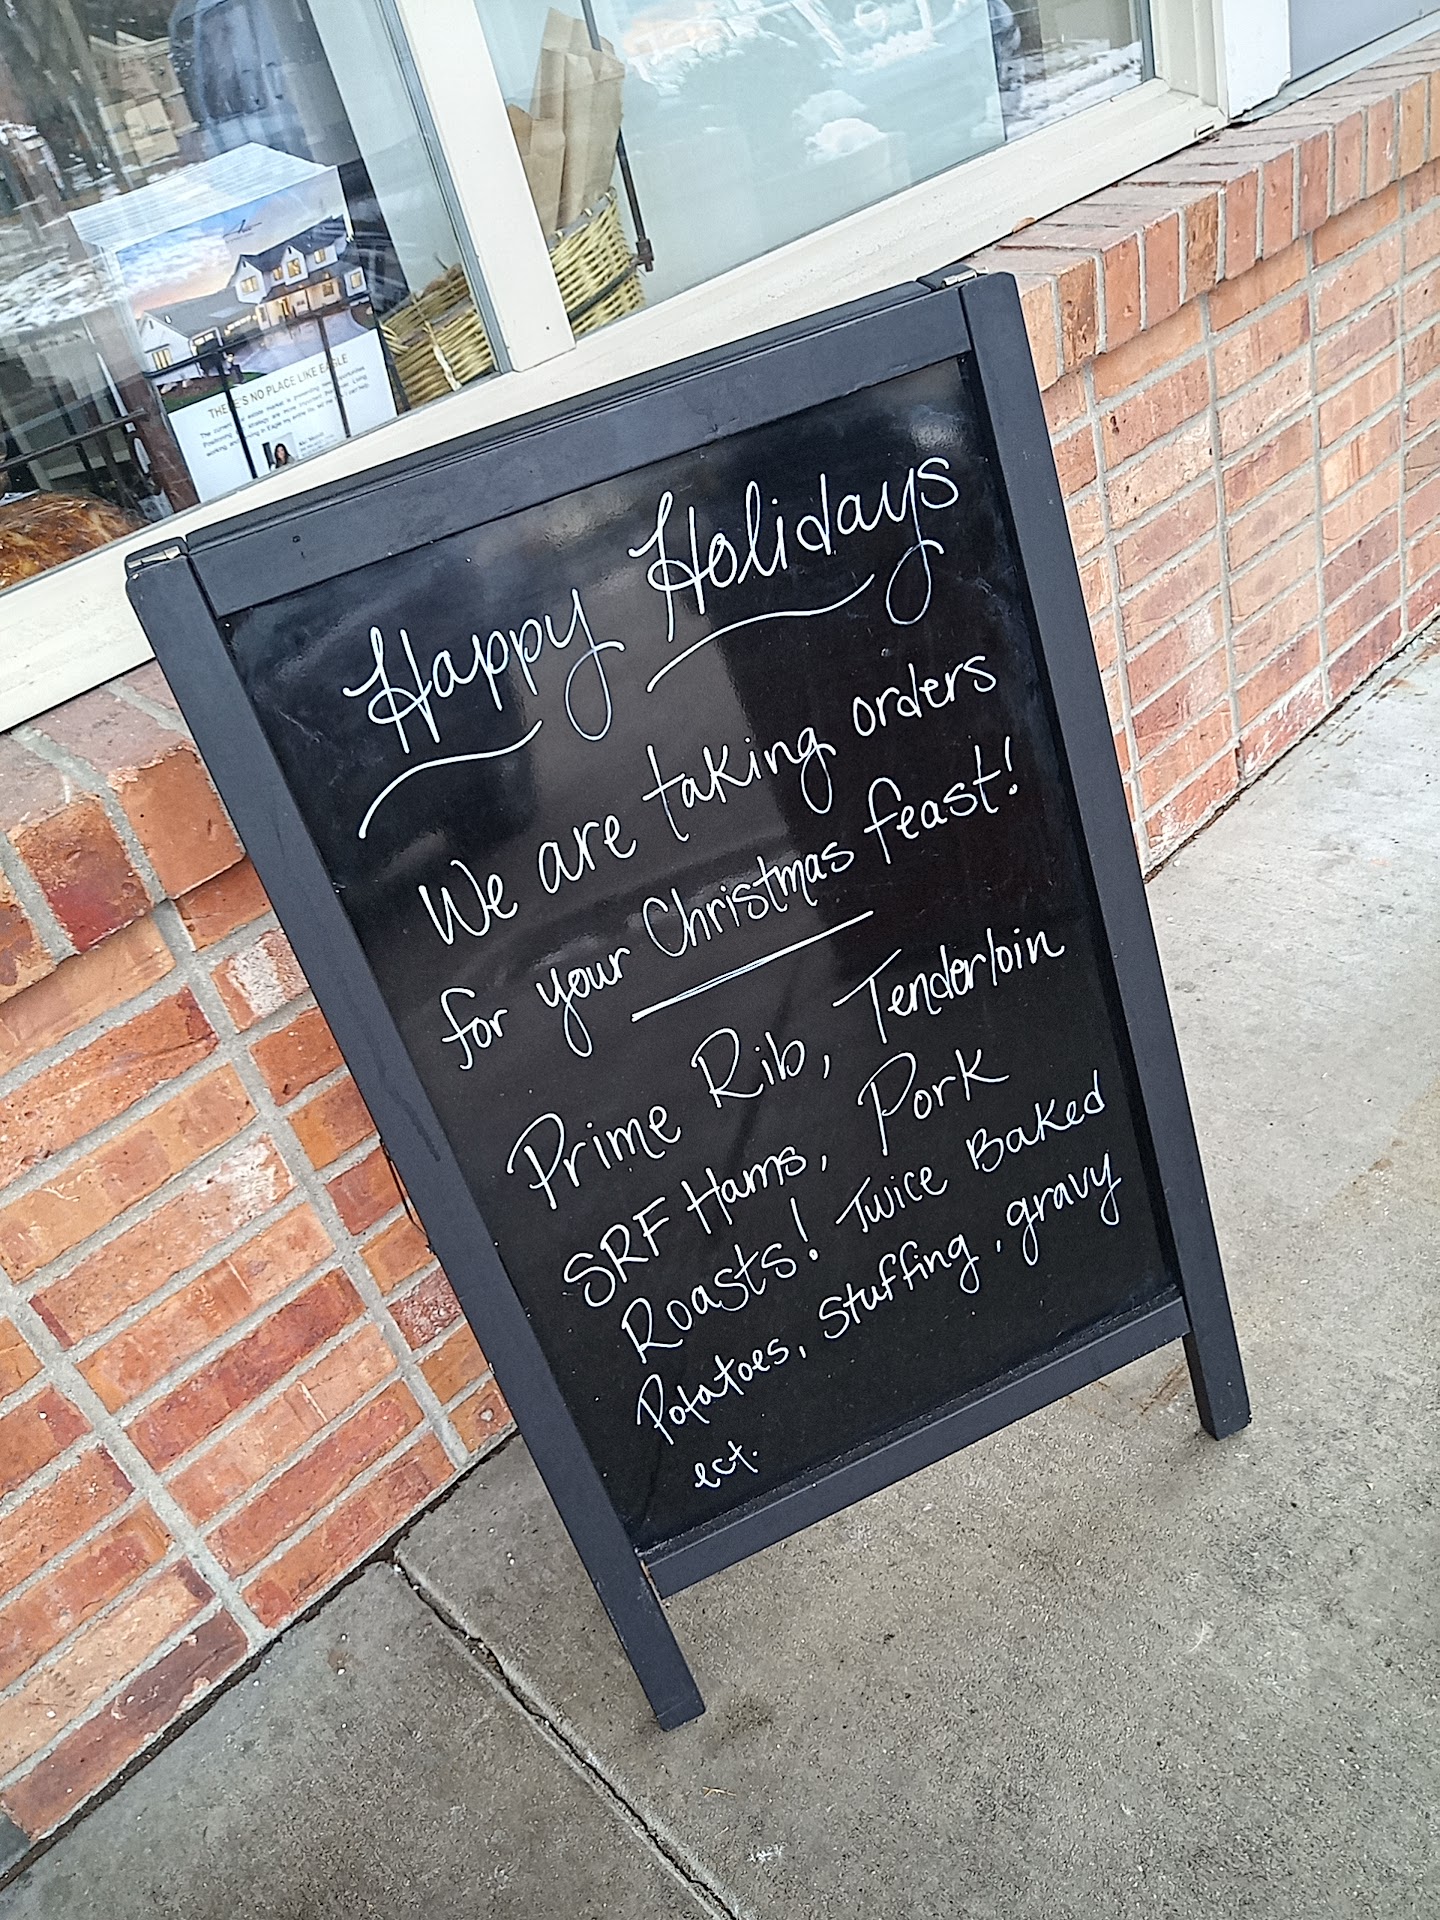 THERE'S NO PLACE LIKE EAGLE
Happy Holidays
We are taking orders
for your Christmas feast!
Prime Rib, Tenderloin
SRF Hams, Pork
Roasts! Twice Baked
Potatoes, stuffing, gravy
ect.